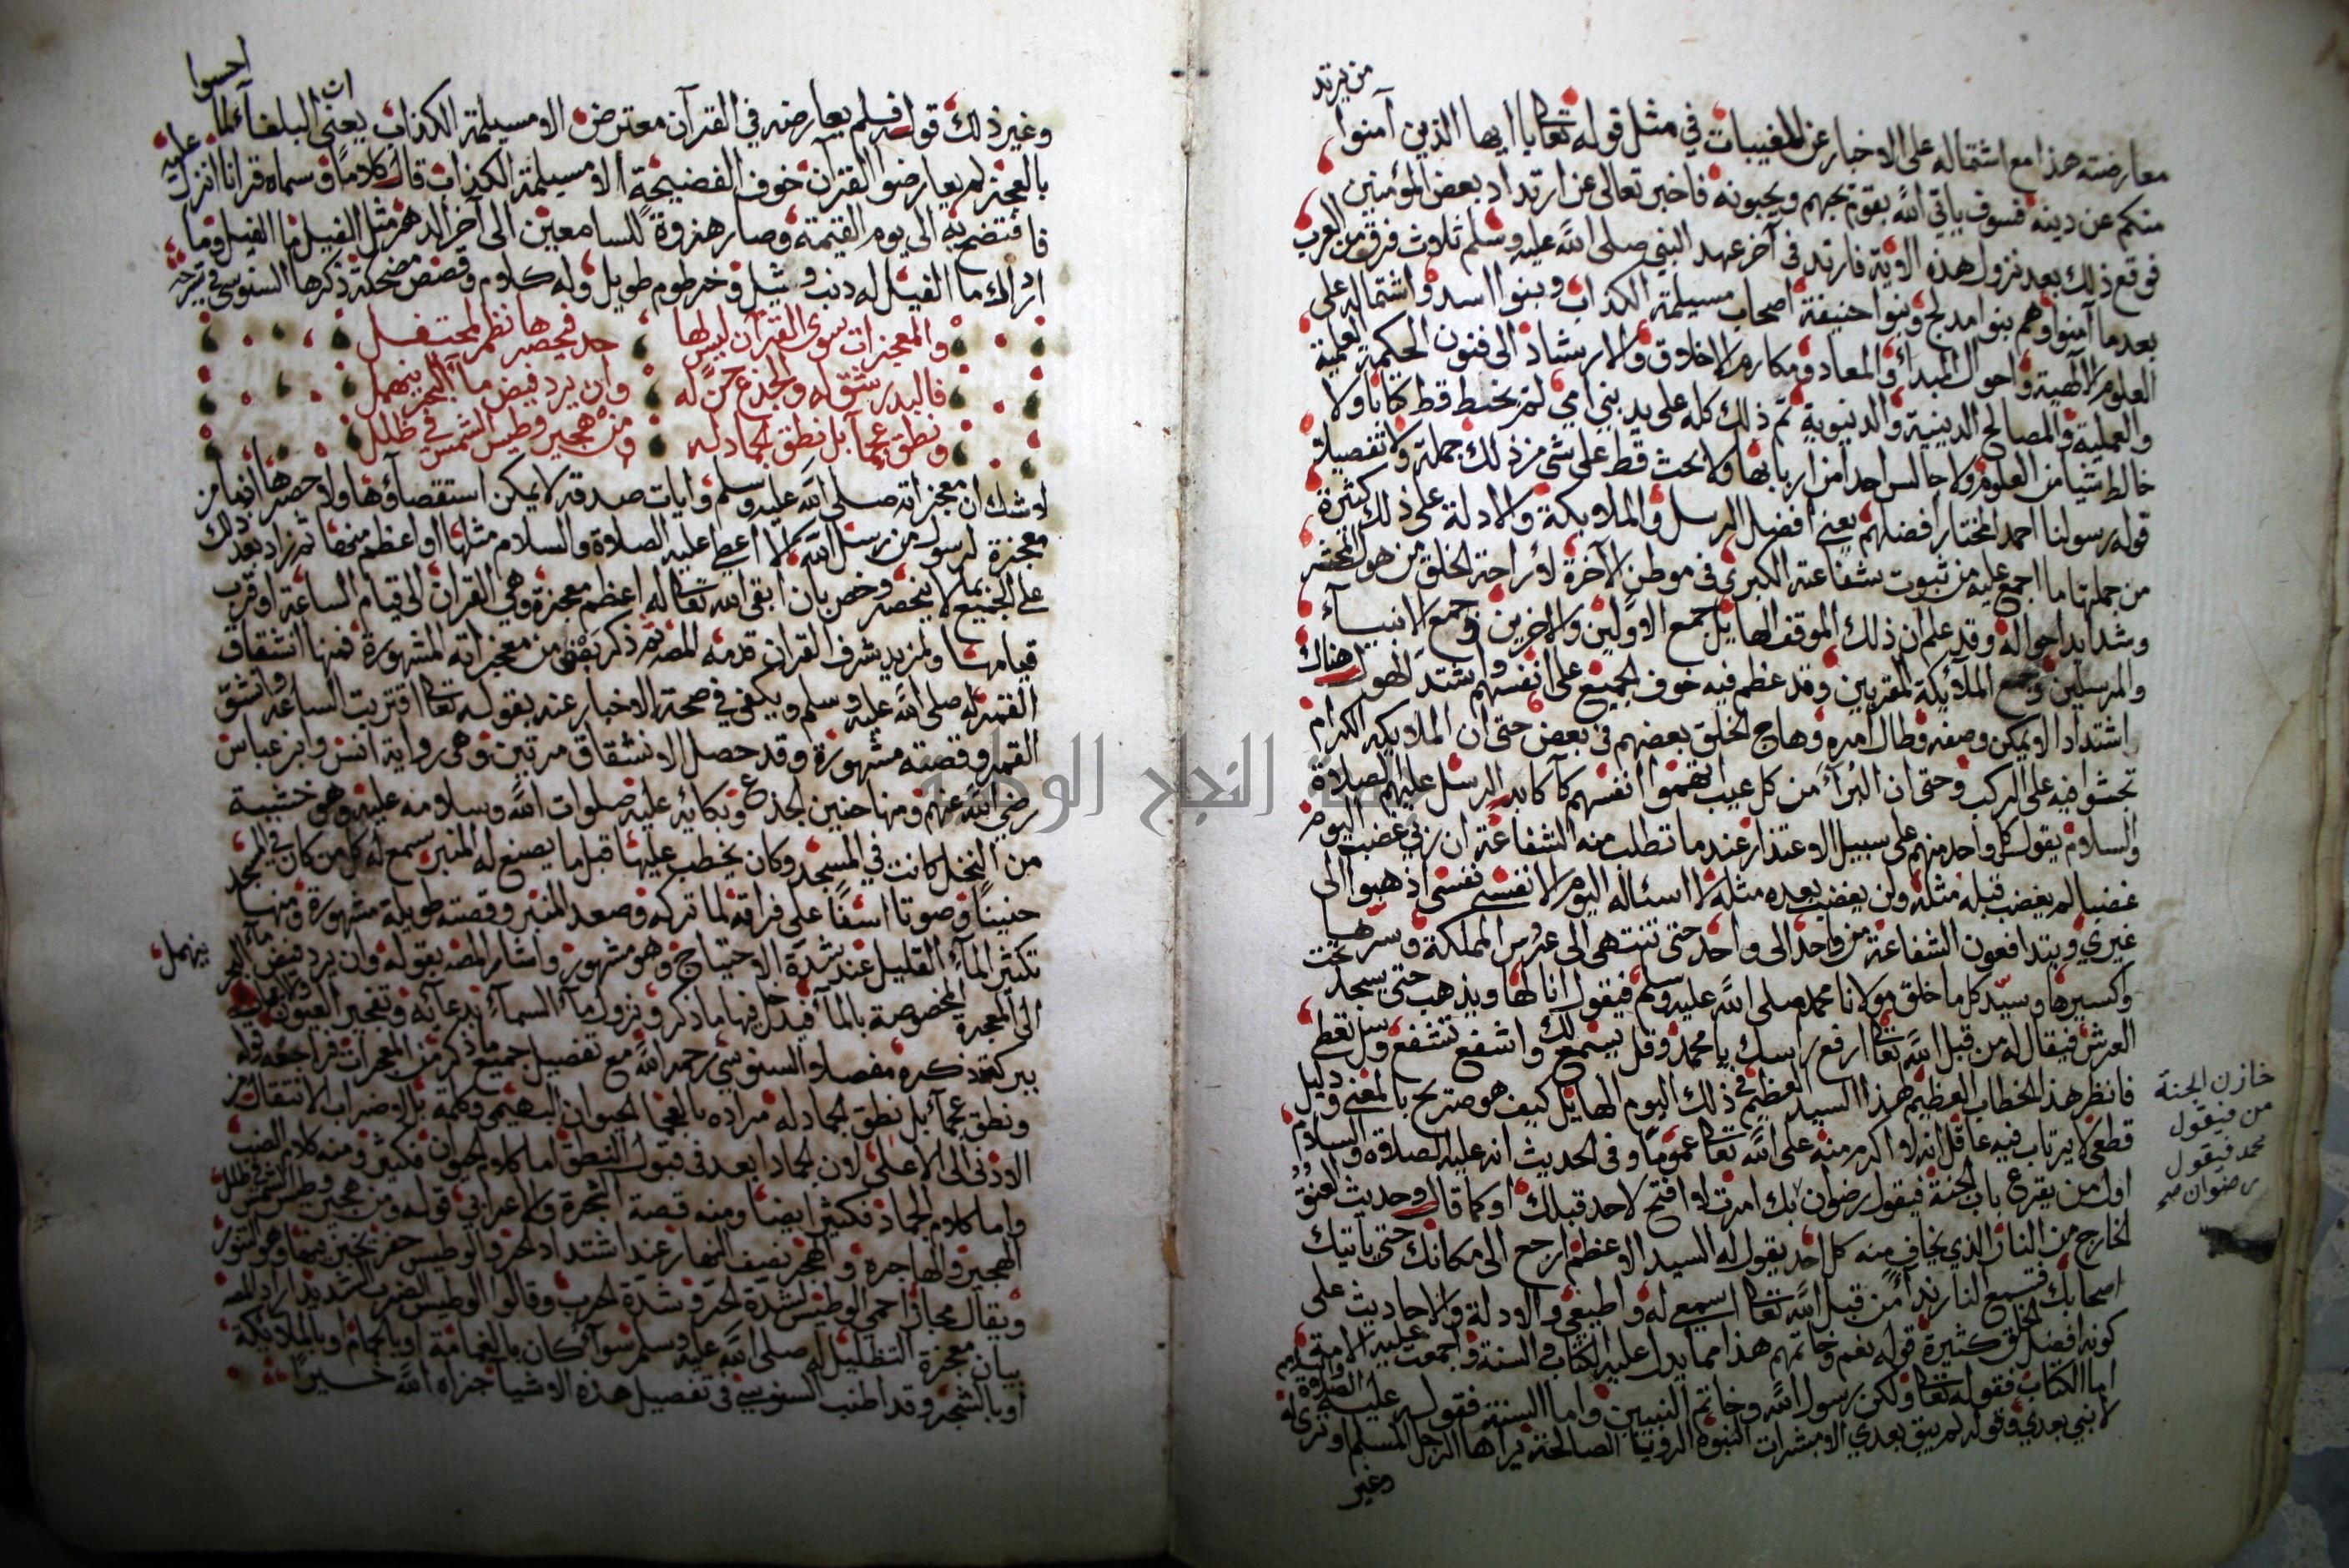 من يرتد
معارضته هذا مع اشتماله على الاخبار عن المغيبات في مثل قوله تعالى يا ايها الذين آمنوا
منكم عن دينه فسوف ياتي الله بقوم يحبهم ويحبونه فاخبر تعالى عن ارتداد بعض المؤمنين
فوقع ذلك بعد نزول هذه الاية فارتد في آخر عهد النبي صلى الله عليه وسلم ثلاث فرق من العرب
بعد ما آمنوا وهم بنوا مدلج وبنوا حنيفة اصحاب مسيلمة الكذاب وبنوا اسد واشتماله على
العلوم الالهية واحوال المبدأ والمعاد ومكارم الاخلاق والارشاد الى فنون الحكمة العلمية
والعملية والمصالح الدينية والدنيوية ثم ذلك كله على يد نبي امي لم يخط قط كتابا ولا
خالط شيئا من العلوم ولا جالس احدا من اربابها ولا بحث قط على شي من ذلك جملة ولا تفصيلا
قوله رسولنا احمد المختار افضلهم يعني افضل الرسل والملايكة والادلة على ذلك كثيرة
من جملتها ما اجمع عليه من ثبوت شفاعته الكبرى في موطن الآخرة لأراحة الخلق من هول المحشر
وشدايد احواله وقد علم ان ذلك الموقف الهايل جمع الاولين والاخرين وجمع الانبيآء
والمرسلين وجمع الملآئكة المقربين وقد عظم فيه خوف الجميع على انفسهم واشتد الهول هناك
اشتدادا لا يمكن وصفه وطال امره وهاج الخلق بعضهم في بعض حتى ان الملايكه الكرام
تجثوا فيه على الركب وحتى ان البرآء من كل عيب اتهموا انفسهم كآكابر الرسل عليهم الصلاة
والسلام يقول كل واحد منهم على سبيل الاعتذار عند ما تطلب منه الشفاعة ان ربي غضب اليوم
غضبا لم يغضب قبله مثله ولن يغضب بعده مثله لا اسئاله اليوم الا نفسي نفسي اذهبوا الى
غيري ويتدافعون الشفاعة من واحد الى واحد حتى تنتهي الى عروس المملكة وسرها
واكسيرها وسيد كل ما خلق مولانا محمد صلى الله عليه وسلم فيقول انا لها ويذهب حتى يسجد تحت
العرش فيقال له من قبل الله تعالى ارفع راسك يا محمد وقل يسمع لك واشفع تشفع وسل تعطى
فانظر هذ الخطاب العظيم هذا السيد العظيم في ذلك اليوم الهايل كيف هو صريح بالمعنى ودليل
قطعي لا يرتاب فيه عاقل انه لا اكرم منه على الله تعالى عموما وفي الحديث انه عليه الصلاة والسلام
اول من يقرع باب الجنة فيقول رضوان بك امرت لا افتح لاحد قبلك او كما قال وحديث العنق
الخارج من النار الذي يخاف منه كل احد يقول له السيد الاعظم ارجع الى مكانك حتى ياتيك
اصحابك فتسمع النار ندآء من قبل الله تعالى اسمعي له واطيعي والادلة والاحاديث على
كونه افضل الخلق كثيرة قوله نعم وخاتمهم هذا مما يدل عليه الكتاب والسنة واجمعت عليه الامة
اما الكتاب فقوله تعالى ولكن رسول الله وخاتم النبيين واما السنة فقوله عليه الصلاة والسلام
لا نبي بعدي وقوله لم يبق بعدي الا مبشرات النبوة الرويا الصالحة يراها الرجل المسلم او ترى له
وغير
خازن الجنة
من فيقول
محمد فيقول
رضوان صح
وغير ذلك قوله فلم يعارضه في القرآن معترض الا مسيلمة الكذاب يعني ان البلغآء لما احسوا
بالعجز لم يعارضوا القرآن خوف الفضيحة الا مسيلمة الكذاب قال كلاما وسماه قرانا انزل عليه
فافتضح به الى يوم القيمة وصار هزوة للسامعين الى آخر الدهر مثل الفيل ما الفيل وما
ادراك ما الفيل له ذنب وثيل وخرطوم طويل وله كلام وقصص مضحكة ذكرها السنوسي في شرحه
والمعجزات سوى القرآن ليس لها حد فيحصرها نظم لمحتفل
فالبدر شق له والجذع حن له وان يرد فيض مآ البحر ينهمل
ونطق عجمآ بل نطق الجماد له ومن هجير وطيس الشمس في ظلل
لا شك ان معجزاته صلى الله عليه وسلم وايات صدقه لا يمكن استقصآؤها ولا حصرها اذ ما من
معجزة لرسول من رسل الله الا اعطي عليه الصلاة والسلام مثلها او اعظم منها ثم زاد بعد ذلك
على الجميع بما لا ينحصر وخص بان ابقى الله تعالى له اعظم معجزة وهي القران الى قيام الساعة او قرب
قيامها ولمزيد شرف القران قدمه المصه ثم ذكر بعض من معجزاته المشهورة فمنها انشقاق
القمر له صلى الله عليه وسلم ويكفي في صحة الاخبار عنه بقوله تعالى اقتربت الساعة وانشق
القمر وقصته مشهورة وقد حصل الانشقاق مرتين وهي رواية انس وابن عباس
رضي الله عنهم ومنها حنين الجذع وبكايه عليه صلوات الله وسلامه عليه وهو خشبة
من النخل كانت في المسجد وكان يخطب عليها قبل ما يصنع له المنبر سمع له كل من كان في المسجد
حنينا وصوتا اسفا على فراقه لما تركه وصعد المنبر وقصته طويلة مشهورة ومنها
تكثير المآء القليل عند شدة الاحتياج وهو مشهور واشار المصه بقوله وان يرد فيض مآء البحر
ينهمل
الى المعجزة المخصوصة بالمآ فيدخل فيها ما ذكر ونزول مآ السمآء بدعآئه وتفجير العيون
ببركته ذكره مفصلا السنوسي رحمه الله مع تفصيل جميع ما ذكر من المعجزات فراجعه قوله
ونطق عجمآء بل نطق الجماد له مراده بالعجما الحيوان البهيمي وكلمة بل لاضراب الانتقال من
الادنى الى الاعلى لان الجماد ابعد في قبول النطق اما كلام الحيوان فكثير ومنه كلام الضب
واما كلام الجماد فكثير ايضا ومنه قصة الشجرة والاعرابي قوله ومن هجير وطيس الشمس في ظلل
الهجير والهاجرة والهجر نصف النهار عند اشتداد الحر والوطيس حفر يخبز فيها وهو التنور
ويقال مجازا حمي الوطيس لشدة الحر وشدة الحرب وقالوا الوطيس الضرب الشديد اراد المصه
بيان معجزة التظليل له صلى الله عليه وسلم سوآء كان بالغمامة او بالحمام او بالملايكة
او بالشجر وقد اطنب السنوسي في تفصيل هذه الاشيا جزاه الله خيرا
النجاح الوط